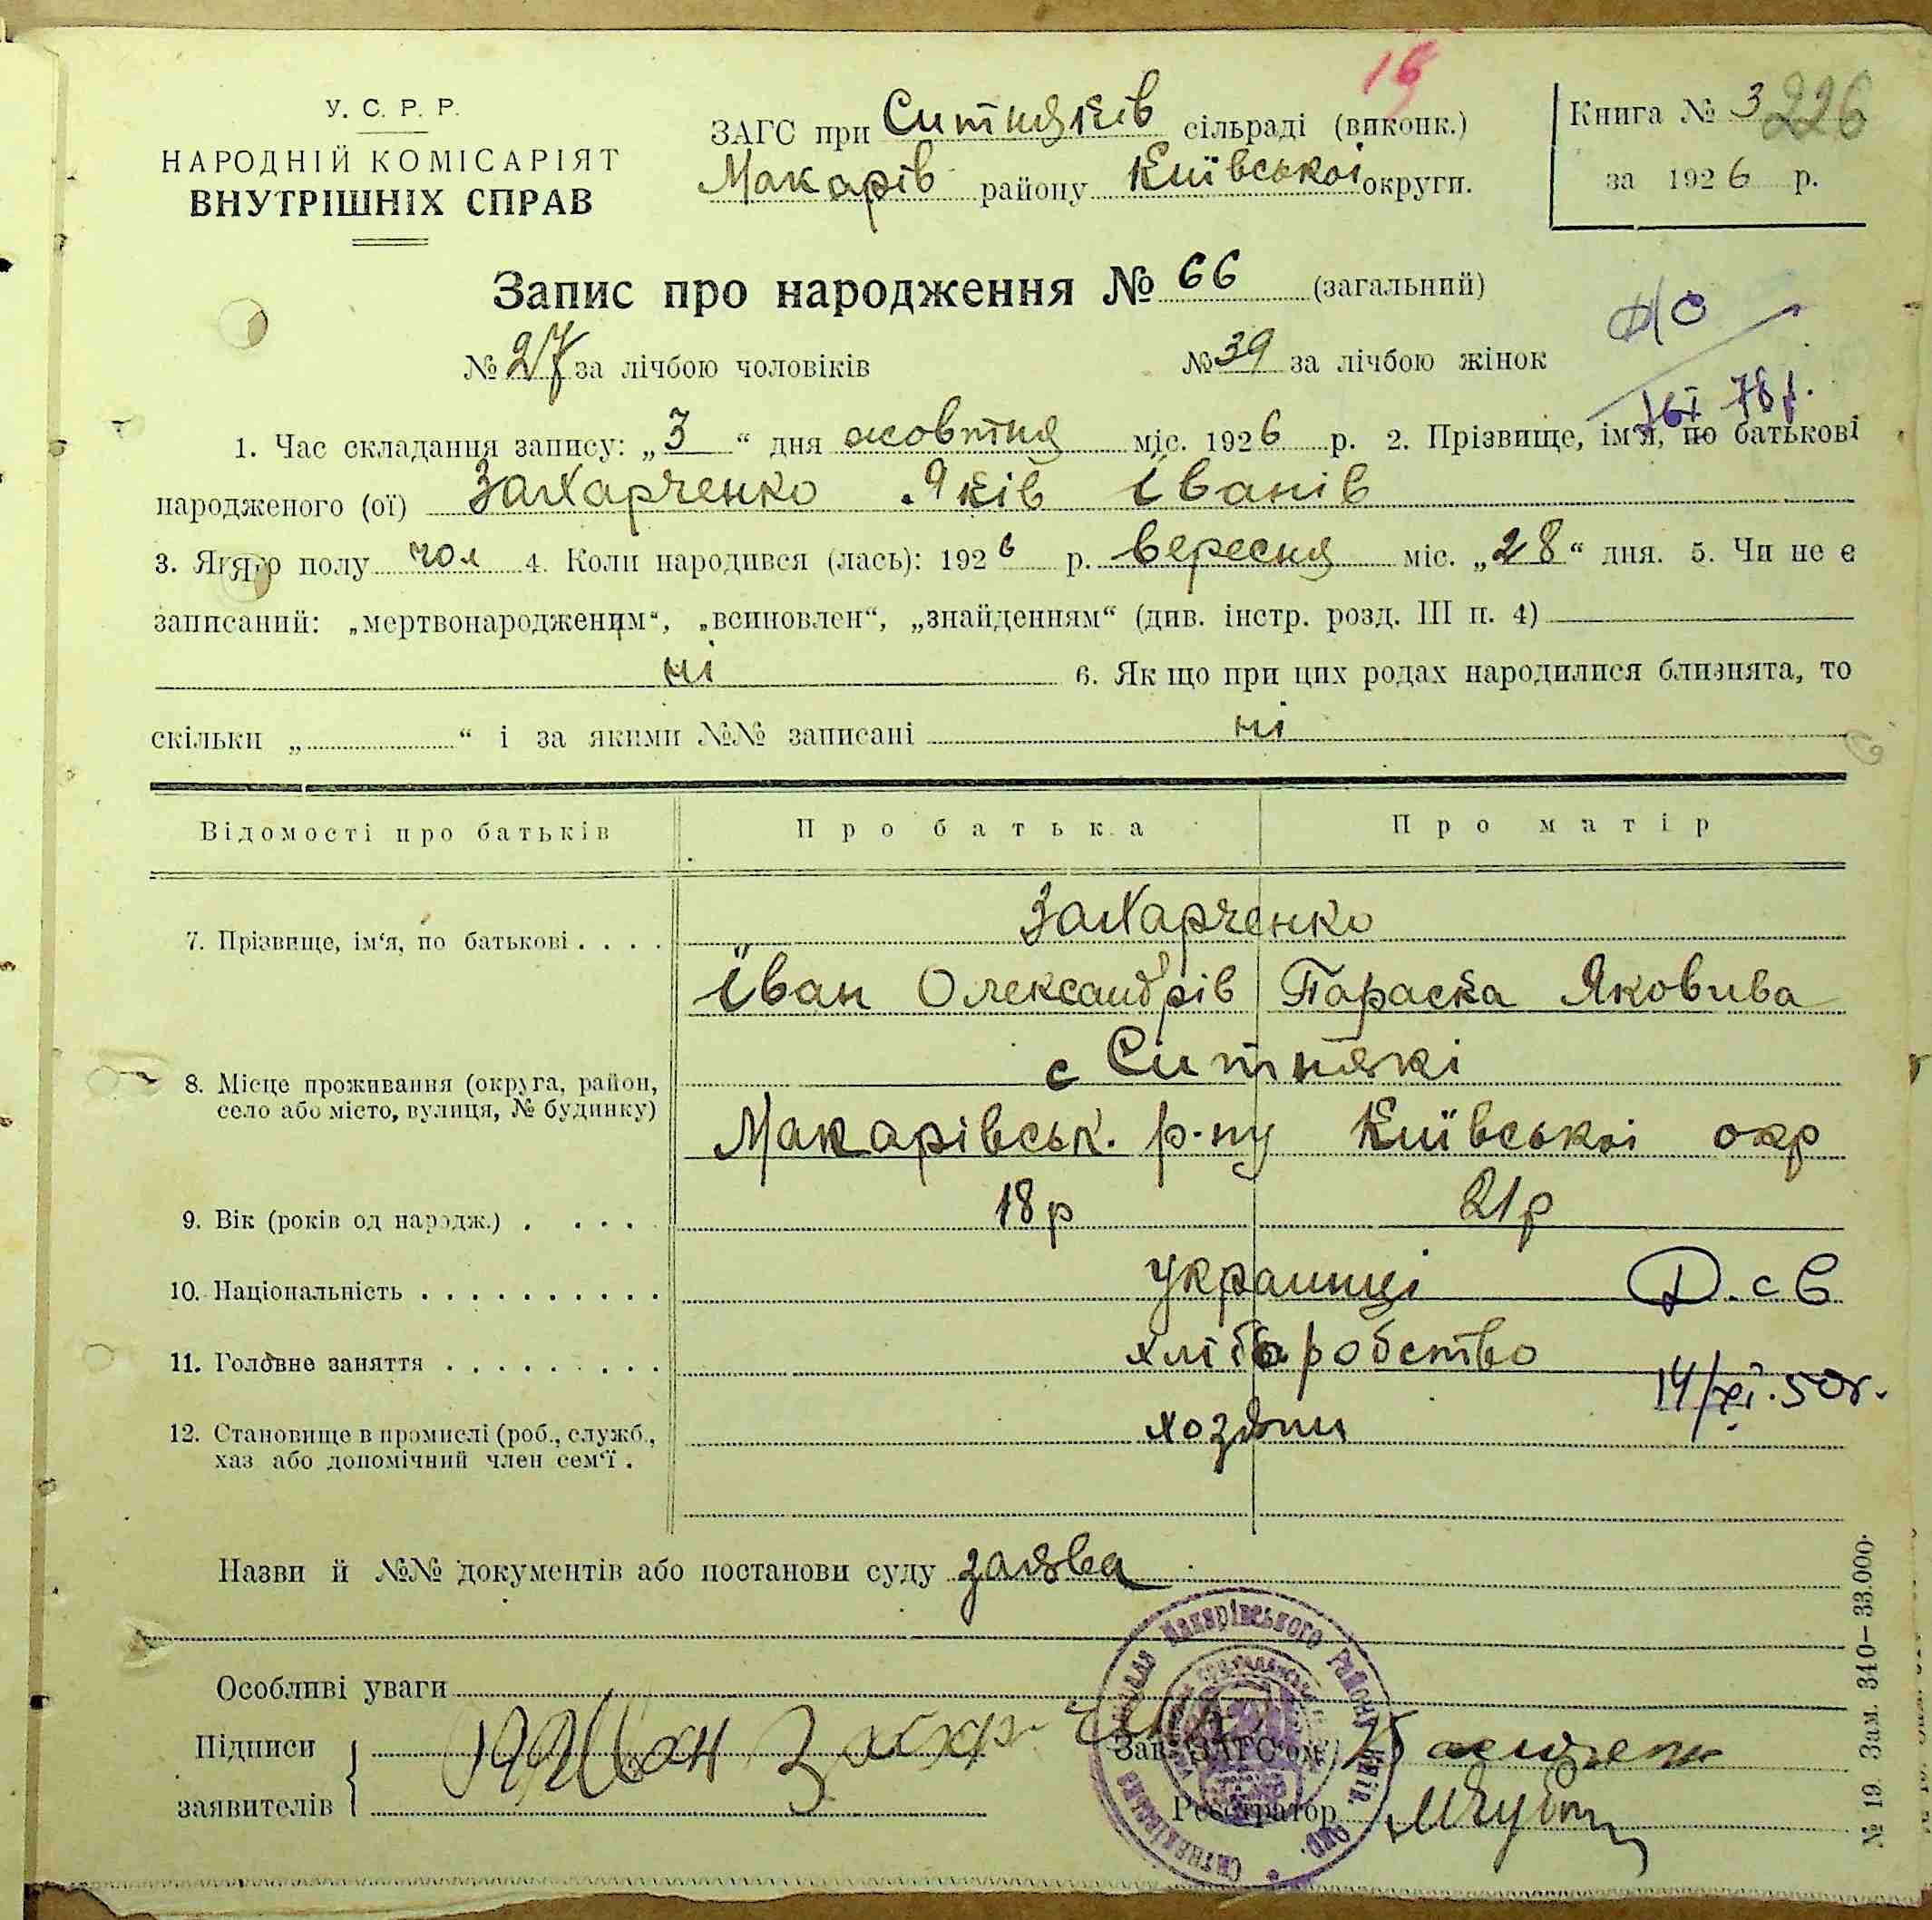 15
У. С. Р. Р.
НАРОДНІЙ КОМІСАРІЯТ
ВНУТРІШНІХ СПРАВ
ЗАГС при Ситняків сільраді (виконк.)
Макарів району Київської округи.
Книга № 3 226
за 1926 р.
Запис про народження № 66 (загальний)
№ 27 за лічбою чоловіків № 39 за лічбою жінок
1. Час складання запису: „3“ дня жовтня міс. 1926 р. 2. Прізвище, ім'я, по батькові
народженого (ої) Захарченко Яків Іванів
3. Якого полу чол 4. Коли народився (лась): 1926 р. вересня міс. „28“ дня. 5. Чи не є
записаний: „мертвонародженим“, „всиновлен“, „знайденням“ (див. інстр. розд. III п. 4)
ні 6. Як що при цих родах народилися близнята, то
скільки „ “ і за якими №№ записані ні
Відомості про батьків Про батька Про матір
7. Прізвище, ім‘я, по батькові . . . . Захарченко
Іван Олександрів Параска Яковива
8. Місце проживання (округа, район, с Ситнякі
село або місто, вулиця, № будинку) Макарівськ. р-ну Київськоі окр
9. Вік (років од народж.) . . . . 18 р 21 р
10. Національність . . . . . . . . . . українці Д. с В
11. Головне заняття . . . . . . . . . хліборобство
14/XI. 50 г.
12. Становище в промислі (роб., служб., хозяїн
хаз або допомічний член сем‘ї .
Назви й №№ документів або постанови суду заява
Особливі уваги
Підписи Іван Захарченко Зав. ЗАГС'ом
заявителів Реєстратор
№ 19. Зам. 340—33.000.